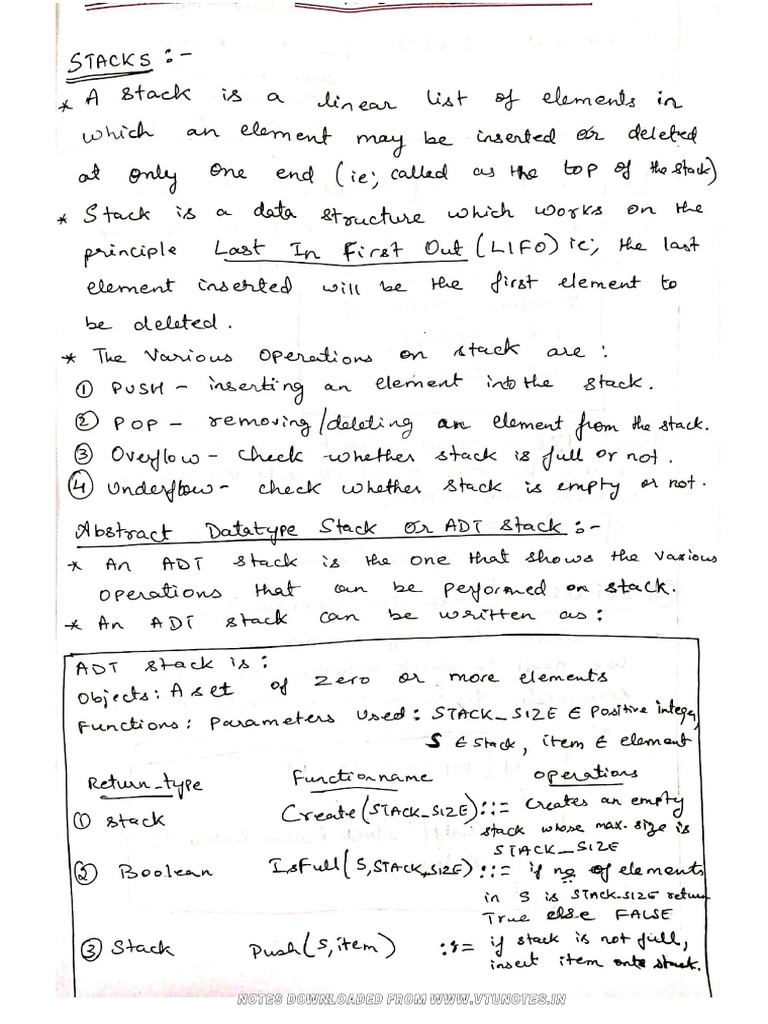 STACKS :-
* A stack is a linear list of elements in
which an element may be inserted or deleted
at only one end (ie; called as the top of the stack)
* Stack is a data structure which works on the
principle Last In First Out (LIFO) ie; the last
element inserted will be the first element to
be deleted.
* The various operations on stack are :
① PUSH - inserting an element into the stack.
② POP - removing/deleting an element from the stack.
③ Overflow - check whether stack is full or not.
④ Underflow - check whether stack is empty or not.
Abstract Datatype Stack or ADT stack :-
* An ADT stack is the one that shows the various
operations that can be performed on stack.
* An ADT stack can be written as :
ADT stack is :
Objects : A set of zero or more elements
Functions : Parameters used : STACK_SIZE ∈ Positive integer,
S ∈ stack, item ∈ element
Return_type Function name operations
① stack Create(STACK_SIZE) ::= creates an empty
stack whose max. size is
STACK_SIZE
② Boolean IsFull(S, STACK_SIZE) ::= if no of elements
in S is STACK_SIZE return
True else FALSE
③ Stack Push(S, item) ::= if stack is not full,
insert item onto stack.
NOTES DOWNLOADED FROM WWW.VTUNOTES.IN